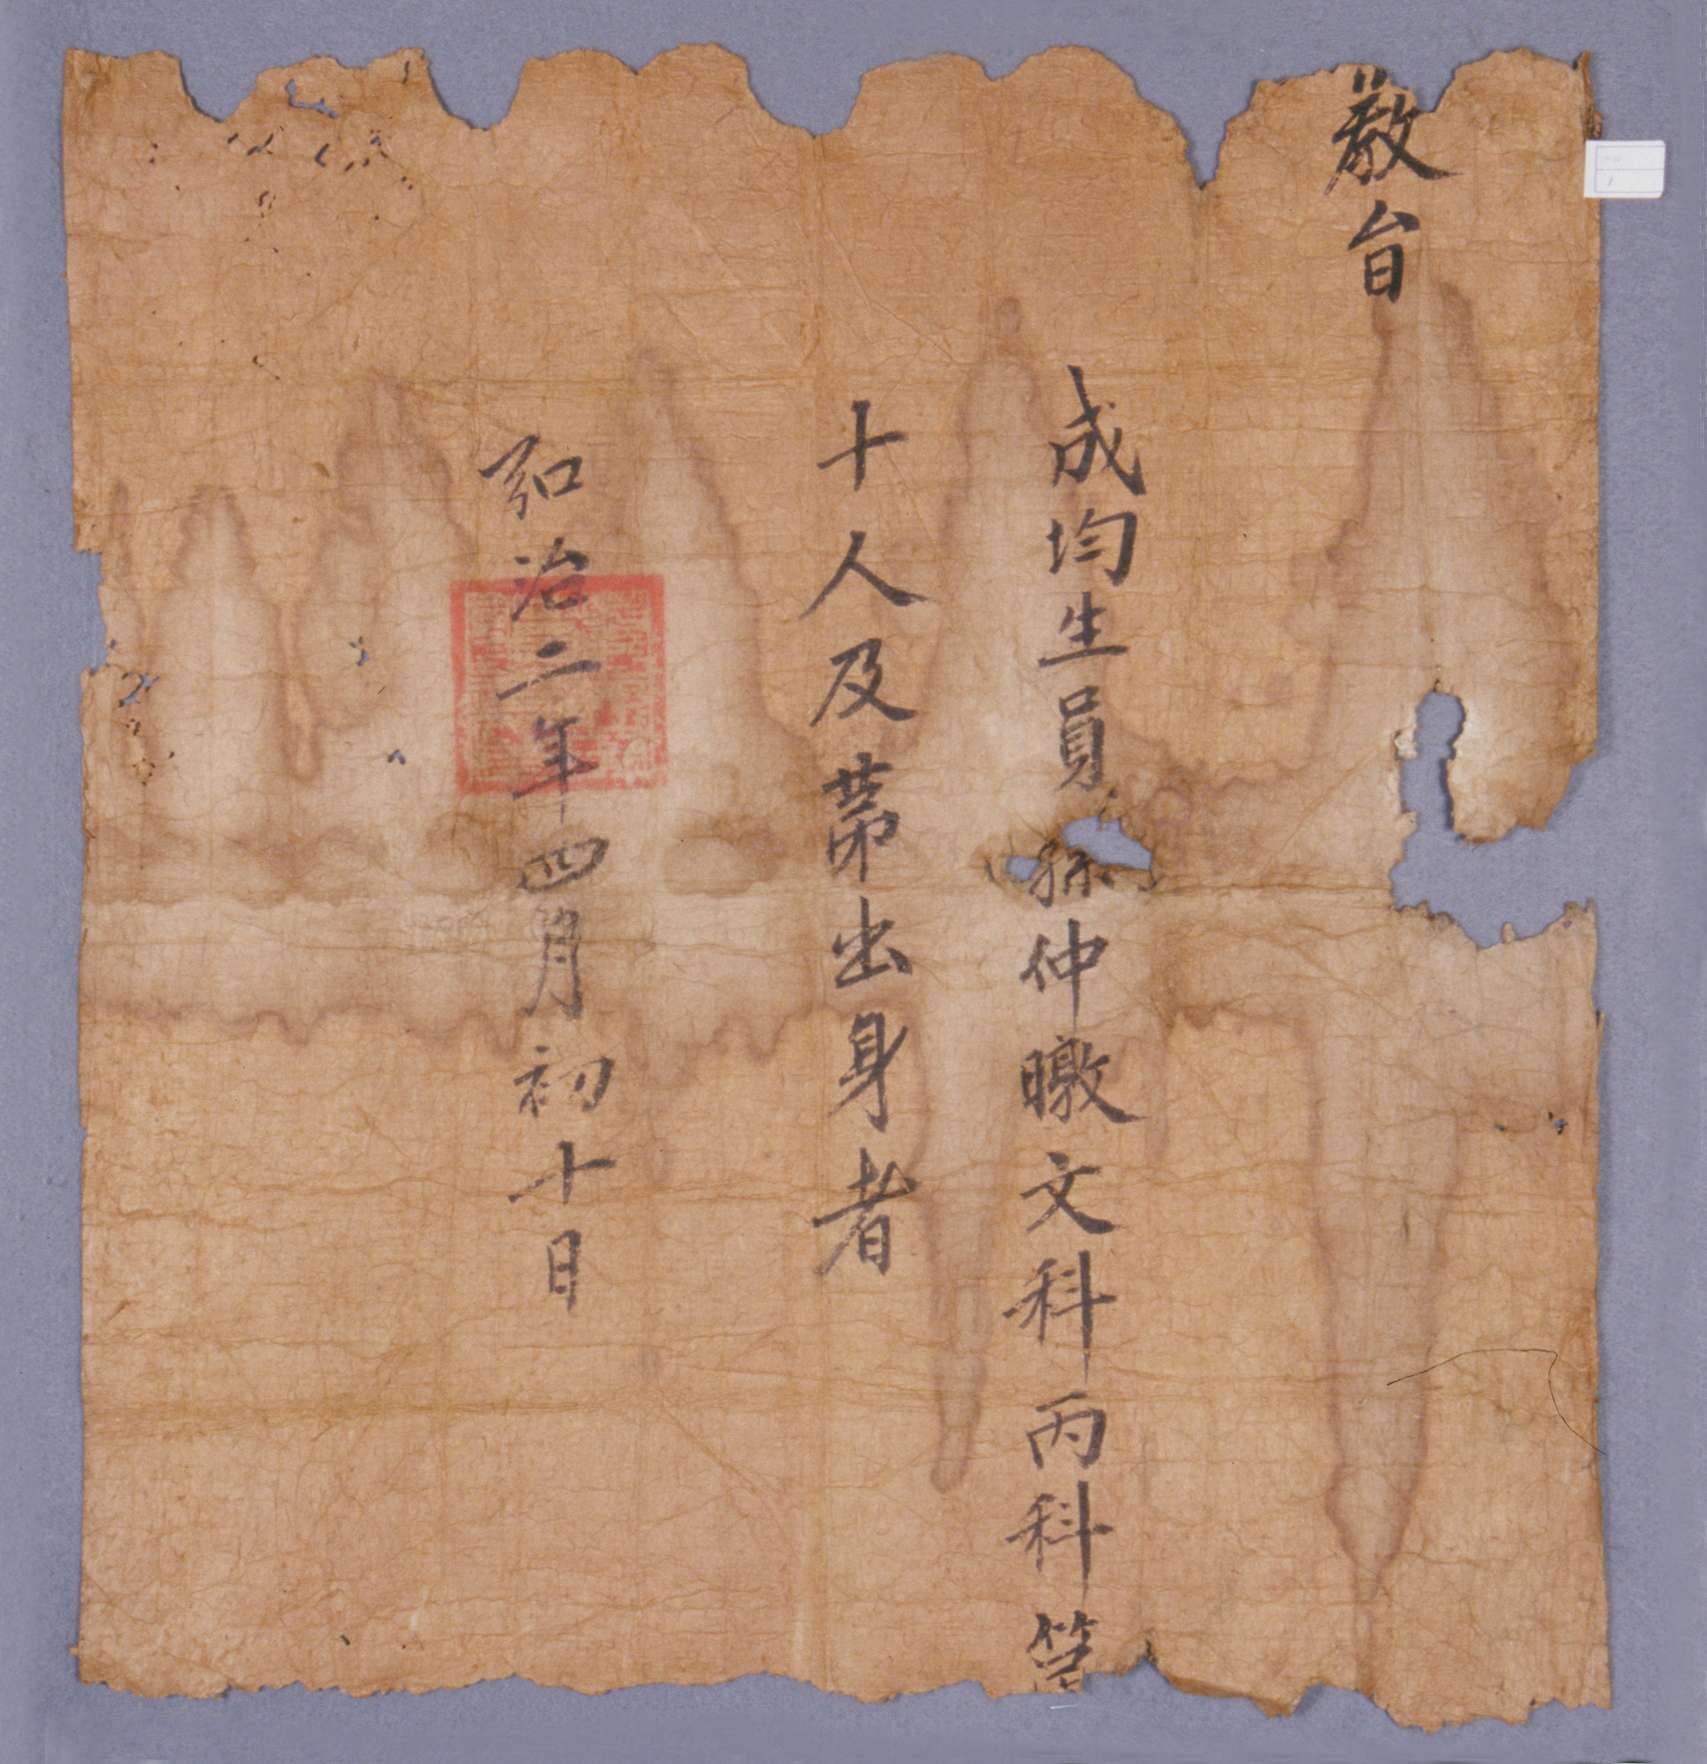 敎旨
成均生員孫仲暾文科丙科第
十人及第出身者
弘治二年四月初十日